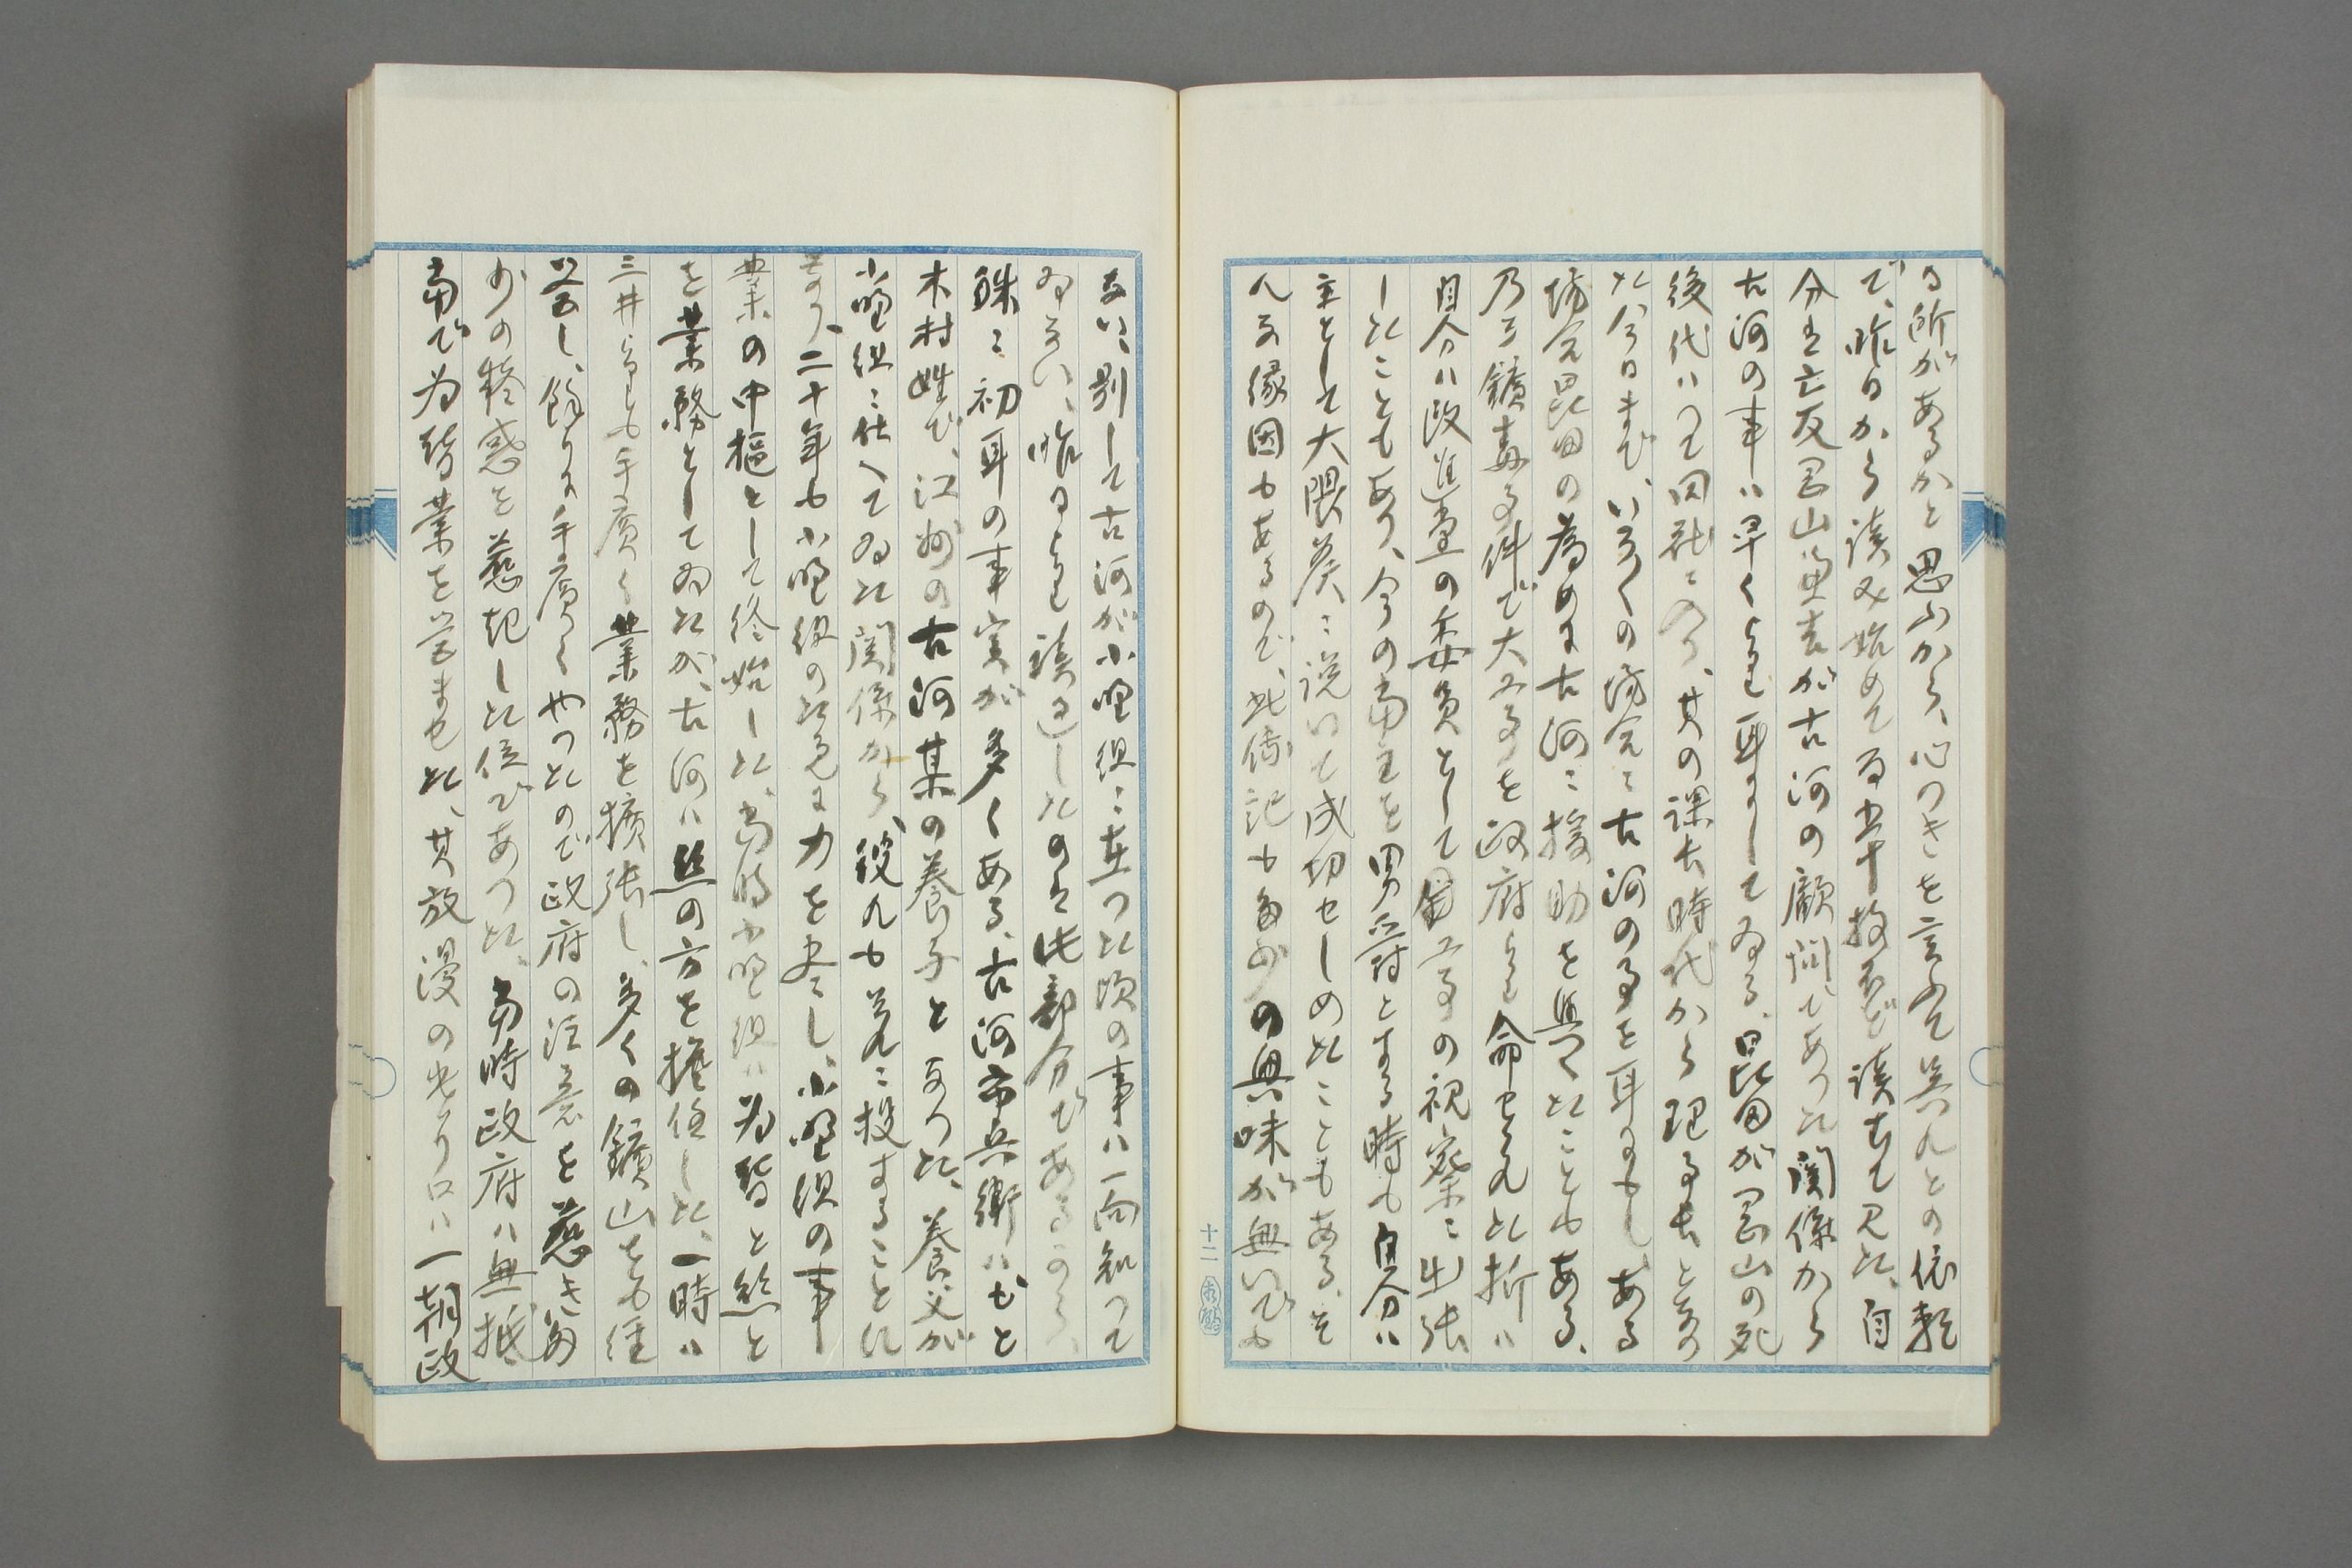 る所があるかと思ふから、心つきを言ふて呉れとの依頼
で、昨日から読み始めて百五十枚ほど読むで見た、自
分は亡友岡山兼吉が古河の顧問であつた関係から
古河の事ハ早くより耳にしてゐる、昆田が岡山の死
後代ハつて同社に入り、其の課長時代から理事長となつ
た今日まで、いろくの場合に古河の事を耳にもし、ある
場合昆田の為めに古河に援助を与へたこともある、
乃ち鑛毒事件で大工事を政府より命ぜられた折ハ
自分ハ改進党の委員として工事の視察に出張
したこともあり、今の当主を男爵とする時も自分ハ
主として大隈侯に説いて成功せしめたこともある、そ
んな縁因もあるので、此伝記も多少の興味が無いでも
ない、別して古河が小野組に在つた頃の事ハ一向知つて
ゐない、昨日より読過したのは此部分であるから、
殊に初耳の事実が多くある、古河市兵衛ハもと
木村姓で、江州の古河某の養子となつた、養父が
小野組に仕へてゐた関係から、彼れも之れに投することに
なり、二十年も小野組のために力を尽し、小野組の事
業の中枢として終始した、当時小野組ハ為替と糸と
を業務としてゐたが、古河ハ糸の方を擔任した、一時ハ
三井よりも手廣く業務を擴張し、多くの鑛山をも経
営し、餘りに手廣くやつたので政府の注意を惹き多
少の疑惑を惹起した位であつた、当時政府ハ無抵
当で為替業を営ませた、其放漫のやり口ハ一朝政
十二